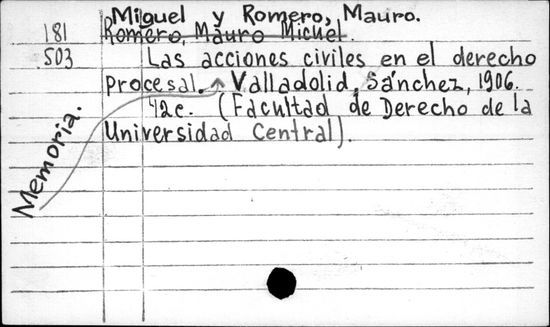 Miguel y Romero, Mauro.
181 Romero, Mauro Michel.
503 Las acciones civiles en el derecho
procesal. Valladolid, Sánchez, 1906.
42c. (Facultad de Derecho de la
Universidad Central).
Memoria.